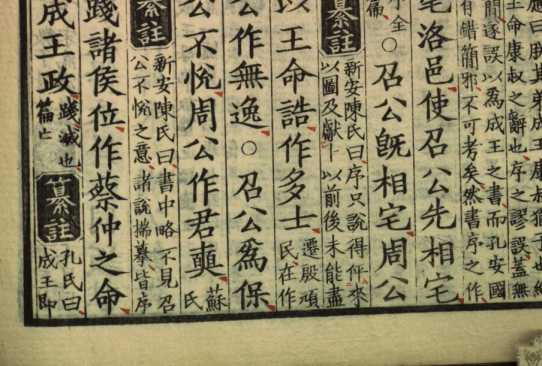 應曰朕其弟成王康叔猶子也
王命康叔之辭也序之謬誤蓋無
簡遂誤以爲成王之書而孔安國
有錯簡邪不可考矣然書序之作
宅洛邑使召公先相宅
序全
篇
○召公旣相宅周公
纂註
新安陳氏曰序只說得作來
以圖及獻卜以前後未能盡
以王命誥作多士
遷殷頑
民在作
公作無逸○召公爲保
纂註
新安陳氏曰書中略不見召
公不悅之意諸說揣摹皆序
公不悅周公作君奭
蘇
氏
踐諸侯位作蔡仲之命
成王政
踐滅也
篇亡
纂註
孔氏曰
成王即